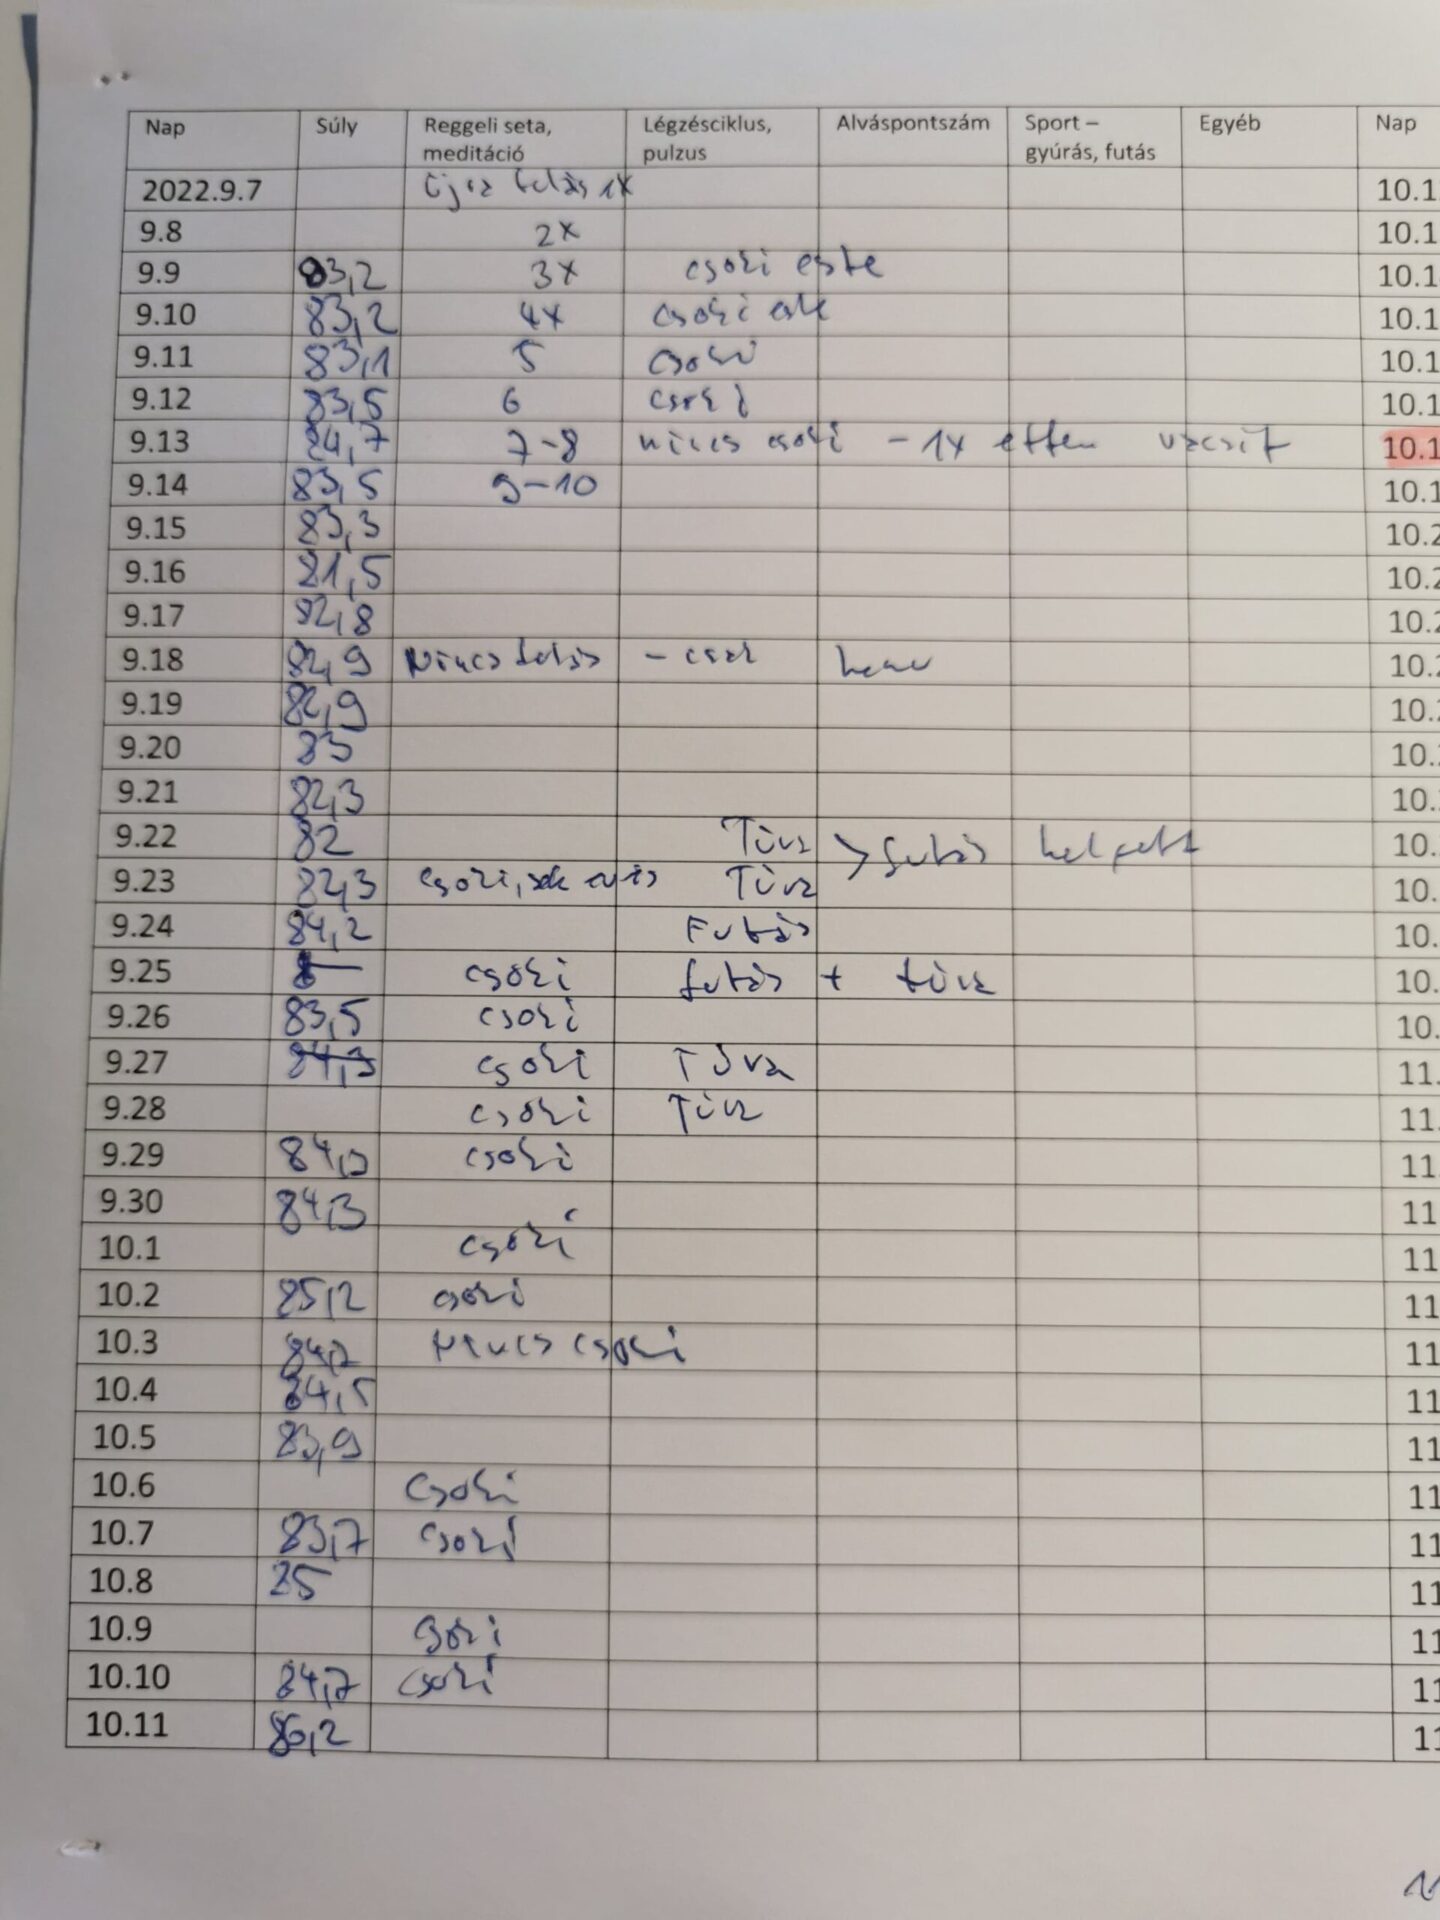 Nap Súly Reggeli seta, meditáció Légzésciklus, pulzus Alváspontszám Sport – gyúrás, futás Egyéb Nap
2022.9.7 Újra futás 1x 10.1
9.8 2x 10.1
9.9 83,2 3x csoki este 10.1
9.10 83,2 4x csoki este 10.1
9.11 83,1 5 csoki 10.1
9.12 83,5 6 csoki 10.1
9.13 84,7 7-8 nincs csoki - 1x ettem vacsit 10.1
9.14 83,5 9-10 10.1
9.15 83,3 10.2
9.16 81,5 10.2
9.17 82,8 10.2
9.18 82,9 Nincs futás - csak 10.2
9.19 82,9 10.2
9.20 83 10.
9.21 82,3 10.
9.22 82 Túra > futás helyett 10.
9.23 82,3 csoki, sok Túra 10.
9.24 84,2 Futás 10.
9.25 csoki futás + túra 10.
9.26 83,5 csoki 10.
9.27 84,3 csoki Túra 11.
9.28 csoki Túra 11.
9.29 csoki 11.
9.30 84,3 11
10.1 csoki 11
10.2 85,2 csoki 11
10.3 84,7 Nincs csoki 11
10.4 84,5 11
10.5 83,9 11
10.6 csoki 11
10.7 83,7 csoki 11
10.8 85 11
10.9 csoki 11
10.10 84,7 csoki 11
10.11 86,2 11